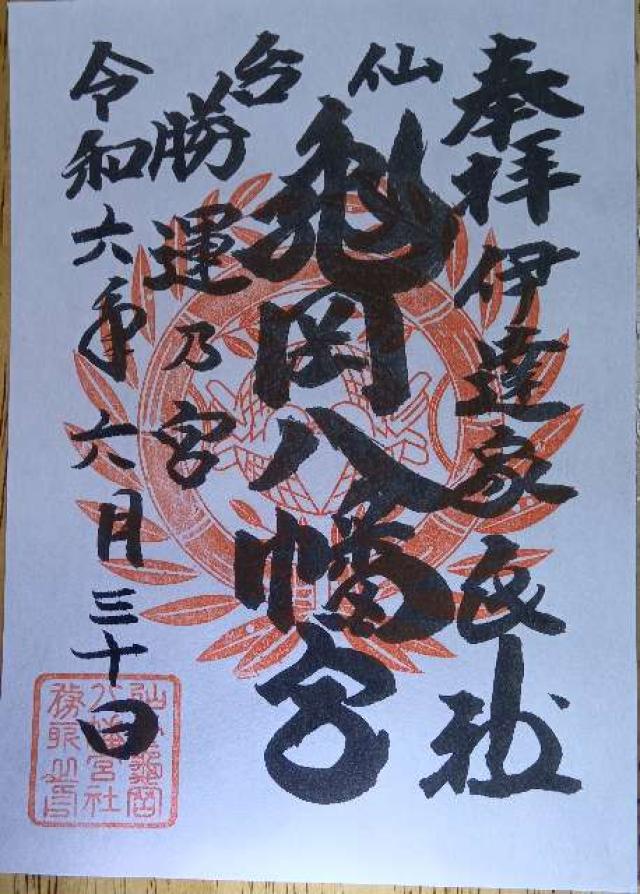 奉拝 伊達家氏社
仙台
亀岡八幡宮
勝運乃宮
令和六年六月三十日
仙台龜岡
八幡宮社
務所之印